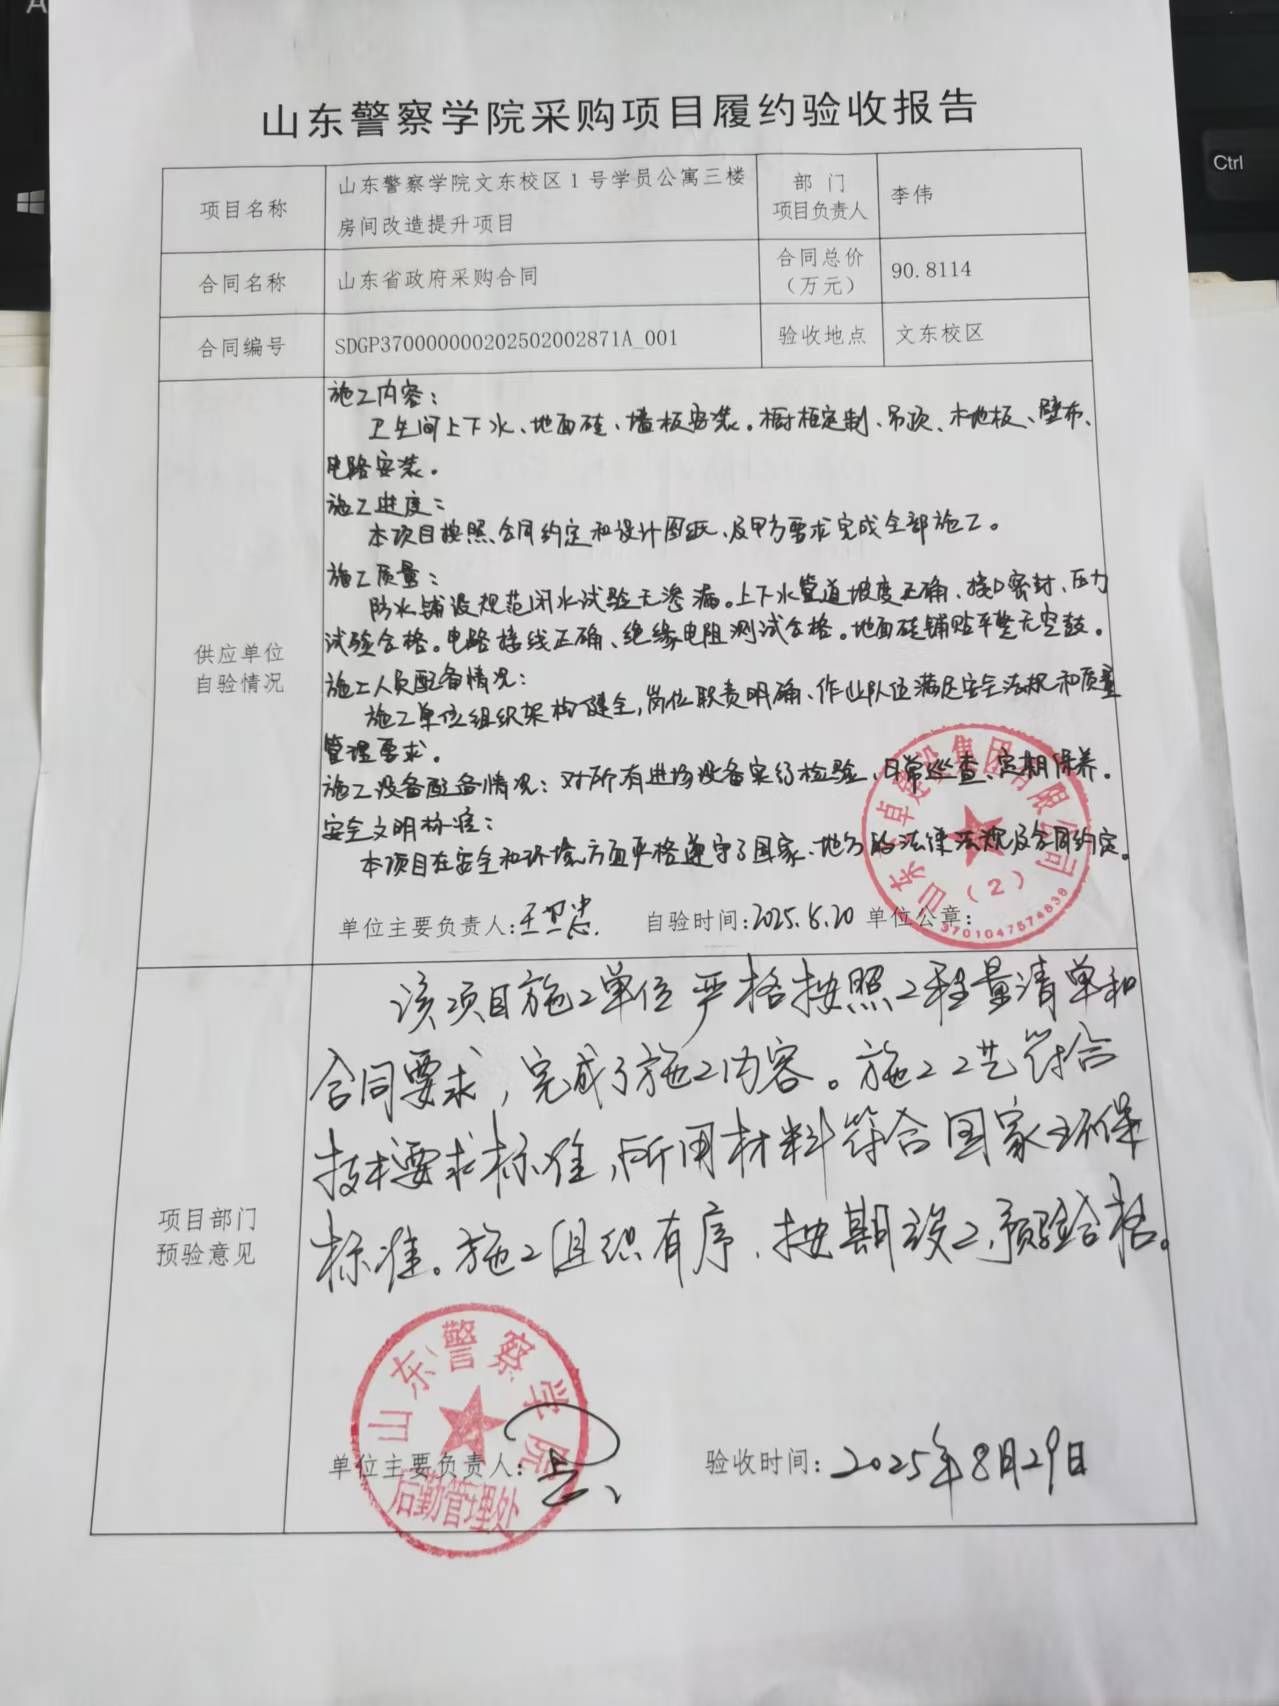 山东警察学院采购项目履约验收报告
项目名称
山东警察学院文东校区1号学员公寓三楼
房间改造提升项目
部 门
项目负责人
李伟
合同名称
山东省政府采购合同
合同总价
（万元）
90.8114
合同编号
SDGP370000000202502002871A_001
验收地点
文东校区
供应单位
自验情况
施工内容：
卫生间上下水、地面砖、墙板安装。橱柜定制、吊顶、木地板、壁布、
电路安装。
施工进度：
本项目按照合同约定和设计图纸、及甲方要求完成全部施工。
施工质量：
防水铺设规范闭水试验无渗漏。上下水管道坡度正确、接口密封、压力
试验合格。电路接线正确、绝缘电阻测试合格。地面砖铺贴平整无空鼓。
施工人员配备情况：
施工单位组织架构健全，岗位职责明确、作业队伍满足安全法规和质量
管理要求。
施工设备配备情况：对所有进场设备实行检验、日常巡查、定期保养。
安全文明标准：
本项目在安全和环境方面严格遵守了国家、地方的法律法规及合同约定。
单位主要负责人：王卫忠 自验时间：2025.8.20 单位公章：
山东卓建设集团有限公司
（2）
3701047574838
项目部门
预验意见
该项目施工单位严格按照工程量清单和
合同要求，完成了施工内容。施工工艺符合
技术要求标准，所用材料符合国家环保
标准。施工组织有序、按期竣工，预验合格。
山东警察学院
后勤管理处
单位主要负责人：
验收时间：2025年8月29日
Ctrl
A